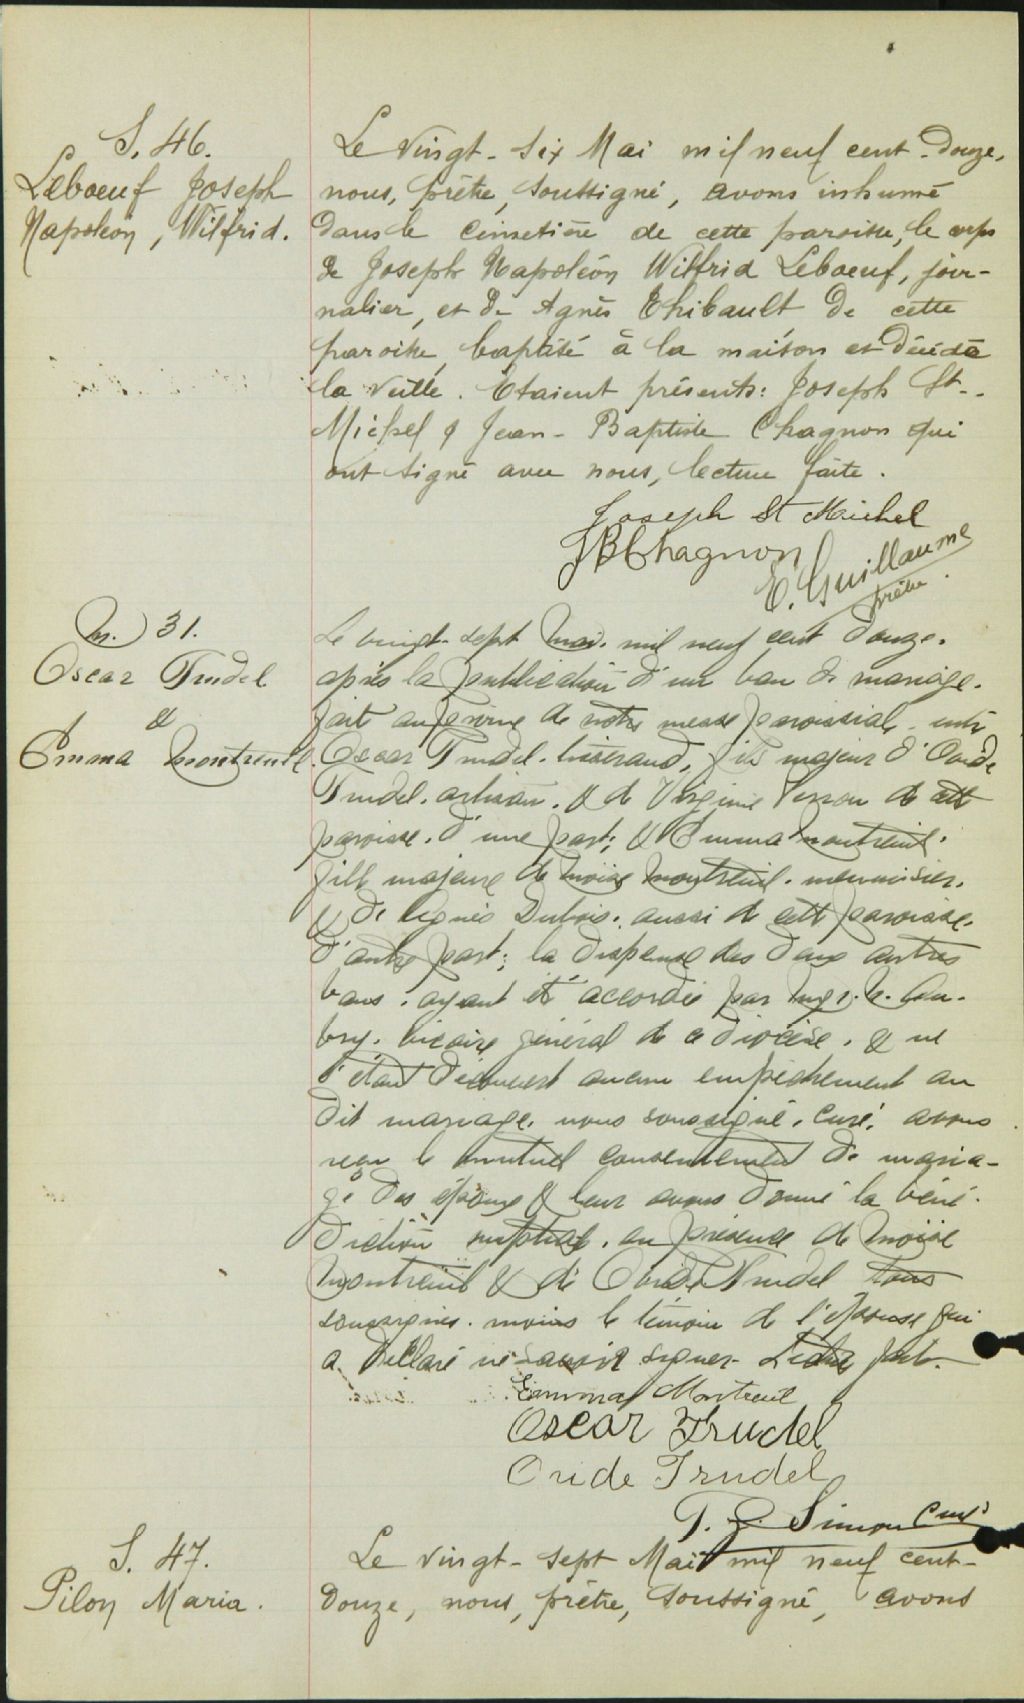 S. 46.
Leboeuf Joseph
Napoléon, Wilfrid.
Le vingt-six Mai mil neuf cent-douze,
nous, prêtre, soussigné, avons inhumé
dans le cimetière de cette paroisse, le corps
de Joseph Napoléon Wilfrid Leboeuf, jour-
nalier, et de Agnès Thibault de cette
paroisse, baptisé à la maison et décédé
la veille. Etaient présents: Joseph St-
Michel & Jean-Baptiste Chagnon qui
ont signé avec nous, lecture faite.
Joseph St Michel
JB Chagnon
E. Guillaume
prêtre.
M. 31.
Oscar Trudel
&
Emma Montreuil.
Le vingt-sept mai. mil neuf cent douze.
après la publication d'un ban de mariage.
fait au prône de notre messe paroissiale. entre
Oscar Trudel. fils majeur d'Ovide
Trudel. artisan. & de Virginie de cette
paroisse. d'une part; & Emma Montreuil.
fille majeure de Moïse Montreuil. menuisier.
& de Agnès Dubois. aussi de cette paroisse.
d'autre part; la dispense des deux autres
bans. ayant été accordée par Mgr.
vicaire général de ce diocèse. & ne
s'étant découvert aucun empêchement au
dit mariage. nous soussigné, curé, avons
reçu le mutuel consentement de maria-
ge des époux & leur avons donné la béné-
diction nuptiale. en présence de Moïse
Montreuil & de Ovide Trudel tous
soussignés. moins le témoin de l'épouse qui
a déclaré ne savoir signer. Lecture faite.
Emma Montreuil
Oscar Trudel
Ovide Trudel
Simon curé
S. 47.
Pilon Maria.
Le vingt-sept Mai mil neuf cent-
douze, nous, prêtre, soussigné, avons